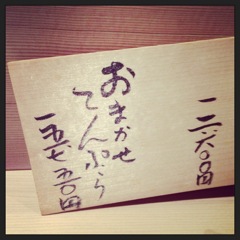 一二六〇〇円
おまかせ
てんぷら
一五七五〇円